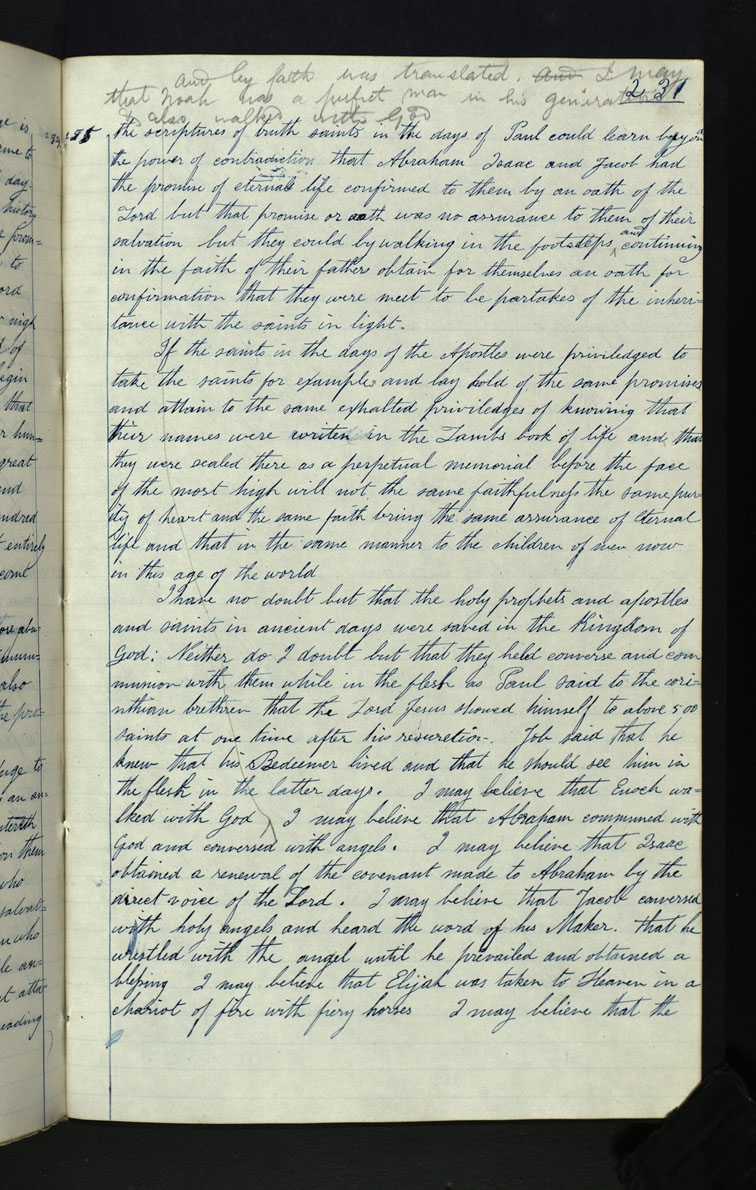 and by faith was translated. and I may
that Noah was a perfect man in his generation
& also walked with God
231
the scriptures of truth saints in the days of Paul could learn beyond
the power of contradiction that Abraham Isaac and Jacob had
the promise of eternal life confirmed to them by an oath of the
Lord but that promise or oath was no assurance to them of their
salvation but they could by walking in the footsteps and continuing
in the faith of their fathers obtain for themselves an oath for
confirmation that they were meet to be partakes of the inheri=
tance with the saints in light.
If the saints in the days of the Apostles were priviledged to
take the saints for example and lay hold of the same promises
and attain to the same exhalted priviledges of knowing that
their names were writen in the Lambs book of life and that
they were sealed there as a perpetual memorial before the face
of the most high will not the same faithfulness the same pur=
ity of heart and the same faith bring the same assurance of eternal
life and that in the same manner to the children of men now
in this age of the world
I have no doubt but that the holy prophets and apostles
and saints in ancient days were saved in the Kingdom of
God: Neither do I doubt but that they held converse and com
munion with them while in the flesh as Paul said to the cori=
nthian brethren that the Lord Jesus showed himself to above 500
saints at one time after his resuretion. Job said that he
knew that his Redeemer lived and that he should see him in
the flesh in the latter days. I may believe that Enoch wa=
lked with God I may believe that Abraham communed with
God and conversed with angels. I may believe that Isaac
obtained a renewal of the covenant made to Abraham by the
direct voice of the Lord. I may believe that Jacob conversed
with holy angels and heard the word of his Maker. that he
wrestled with the angel until he prevailed and obtained a
blessing I may believe that Elijah was taken to Heaven in a
chariot of fire with fiery horses I may believe that the